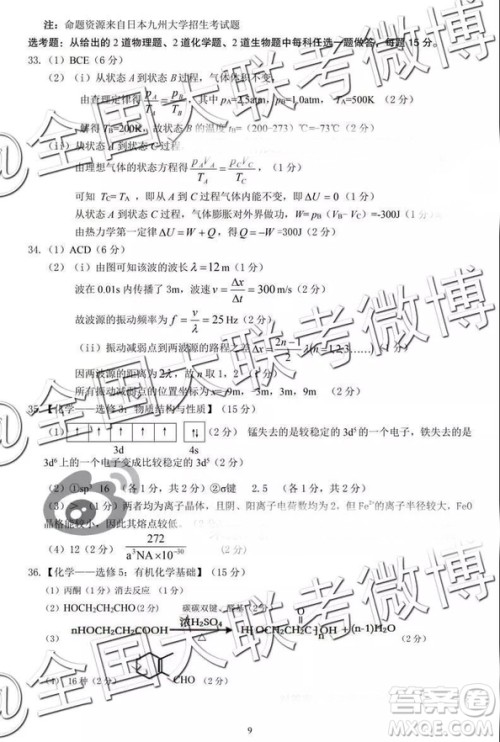 注：命题资源来自日本九州大学招生考试题
选考题：从给出的 2 道物理题、2 道化学题、2 道生物题中每科任选一题做答，每题 15 分。
33.（1）BCE（6 分）
（2）（i）从状态 A 到状态 B 过程，气体体积不变，
由查理定律得 pA/TA = pB/TB，其中 pA=2.5atm，pB=1.0atm，TA=500K （2 分）
解得 TB=200K，故状态 B 的温度 tB=（200-273）℃=-73℃（2 分）
（ii）从状态 A 到状态 C 过程，
由理想气体的状态方程得 pAVA/TA = pCVC/TC，（1 分）
可知 TC= TA ，即从 A 到 C 过程气体内能不变，即 ΔU = 0（1 分）
从状态 A 到状态 C 过程，气体膨胀对外界做功，W= pB（VB－VC）=-300J（1 分）
由热力学第一定律 ΔU = W + Q，得 Q=-W =300J（2 分）
34.（1）ACD（6 分）
（2）（i）由图可知该波的波长 λ = 12 m（1 分）
波在 0.01s 内传播了 3m，波速 v = Δx/Δt = 300 m/s（2 分）
故波源的振动频率为 f = v/λ = 25 Hz（2 分）
（ii）振动减弱点到两波源的路程之差 Δx = (2n-1)/2 λ（n=1,2,3……）（1 分）
因两波源的距离为 2λ，故 n 取 1、2（1 分）
所有振动减弱点的位置坐标为 x=-9m、-3m、3m、9m （2 分）
35.【化学——选修 3：物质结构与性质】（15 分）
（1）↑ ↑ ↑ ↑ ↑ ↑↓（2 分） 锰失去的是较稳定的 3d5 的一个电子，铁失去的是
3d 4s
3d6 上的一个电子变成比较稳定的 3d5（2 分）
（2）①sp3 16（各 1 分，共 2 分）②σ键 2.5（各 1 分，共 2 分）
（3）两者均为离子晶体，且阴、阳离子电荷数均相等，但 Fe2+的离子半径较大，FeO
晶格能较小，因此其熔点较低。（3 分）
（4）12（2 分） 272/(a3NA×10-30)（2 分）
36.【化学——选修 5：有机化学基础】（15 分）
（1）丙酮（1 分）消去反应（1 分）
（2）HOCH2CH2CHO（2 分） 碳碳双键、醛基（2 分）
（3）nHOCH2CH2COOH 浓H2SO4 H[OCH2CH2C]nOH + (n-1)H2O（2 分）
O
CHO
（4）16 种（2 分） （2 分）
9
@全国大联考微博
@全国大联考微博
@全国大联考微博
答案圈
MXQE.COM